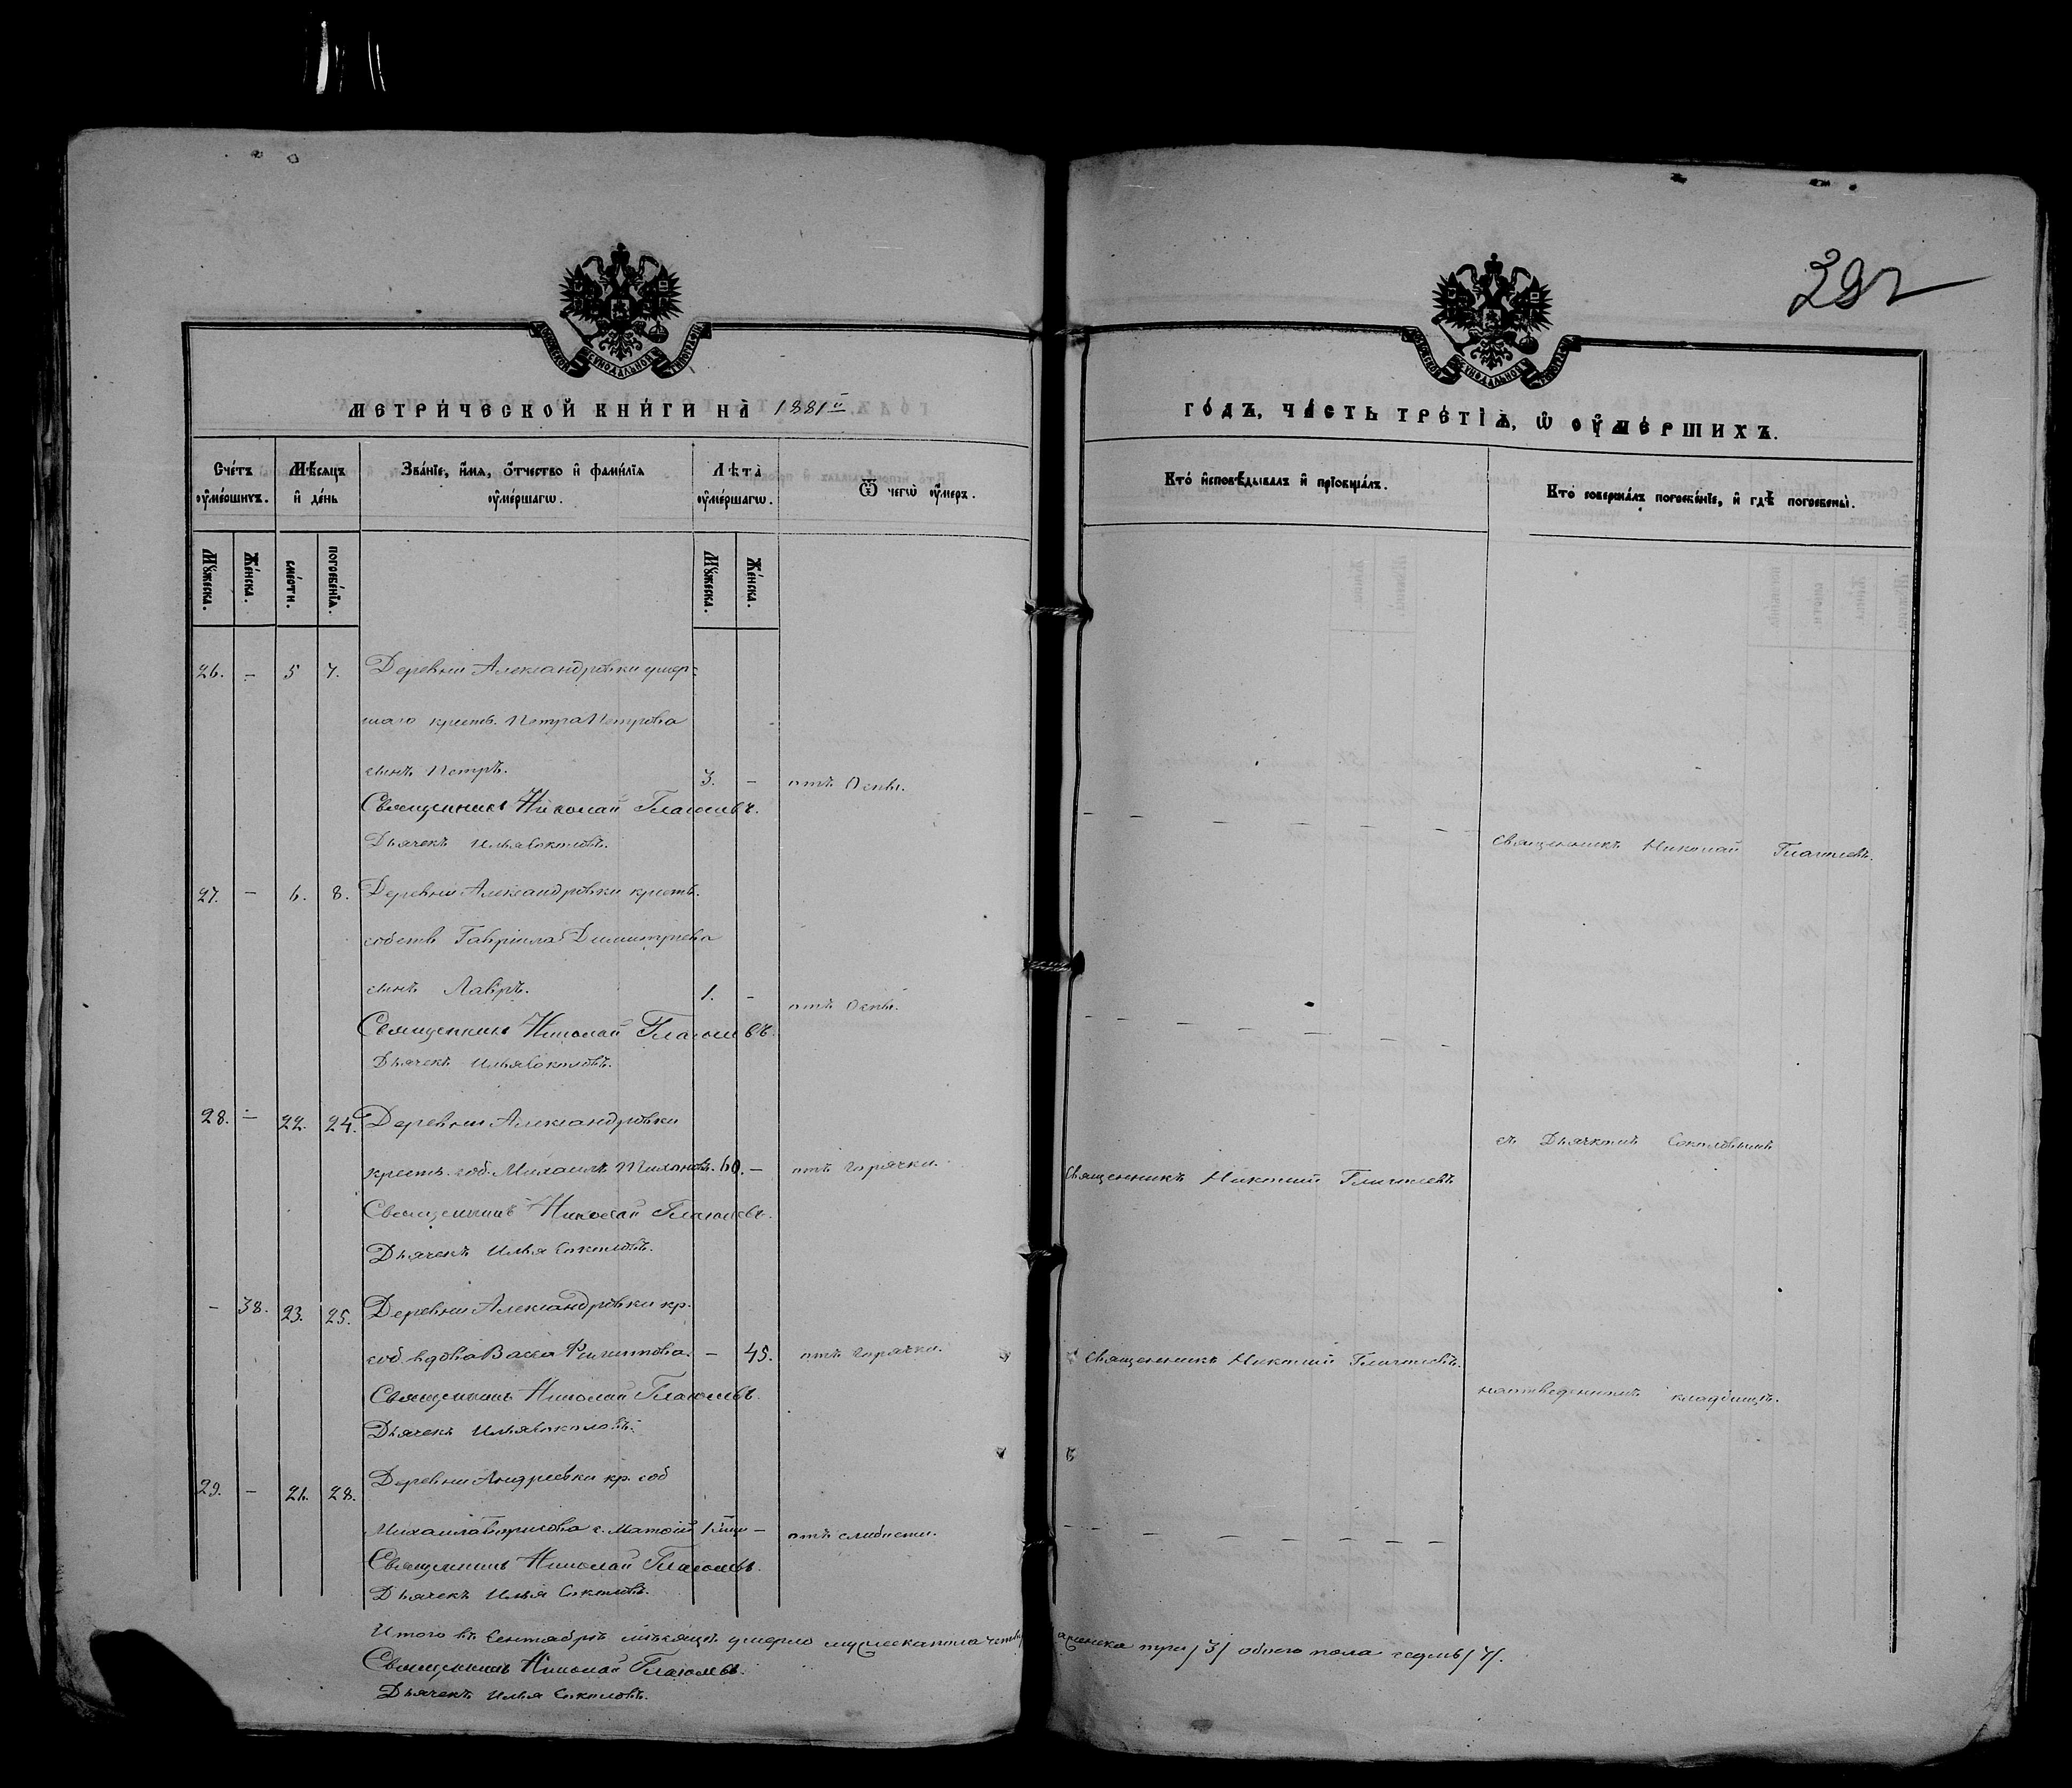 292
МЕТРИЧЕСКОЙ КНИГИ НА 1881й
ГОДЪ, ЧАСТЬ ТРЕТІЯ, Ѿ ОУМЕРШИХЪ.
Счетъ оумершихъ.
Мѣсяцъ и день
Званіе, имя, отчество и фамилія оумершагѡ.
Лѣта оумершагѡ.
Ѿ чегѡ оумеръ.
Кто исповѣдывалъ и пріобщалъ.
Кто совершалъ погребеніе, и гдѣ погребены.
Мужеска.
Женска.
смерти.
погребенія.
Мужеска.
Женска.
26. – 5 7. Деревни Александровки умер-
шаго крест. Петра Петрова
сынъ Петръ. 3. – отъ Оспы.
Священникъ Николай Глаголевъ.
Дьячекъ Илья Соколовъ.
Священникъ Николай Глаголевъ.
27. – 6. 8. Деревни Александровки крест.
собств Гавріила Димитріева
сынъ Лавръ. 1. – отъ Оспы.
Священникъ Николай Глаголевъ.
Дьячекъ Илья Соколовъ.
28. – 22. 24. Деревни Александровки
съ Дьячкомъ Соколовымъ
крест. соб. Михаилъ 60. – отъ горячки. Священникъ Николай Глаголевъ
Священникъ Николай Глаголевъ.
Дьячекъ Илья Соколовъ.
– 38. 23. 25. Деревни Александровки кр.
соб. вдова Васса Филиппова. – 45. отъ горячки. Священникъ Николай Глаголевъ.
Священникъ Николай Глаголевъ.
на отведенномъ кладбищѣ.
Дьячекъ Илья Соколовъ.
29. – 26. 28. Деревни Андреевки кр. соб
Михаила с. Матѳій – отъ слабости.
Священникъ Николай Глаголевъ.
Дьячекъ Илья Соколовъ.
Итого въ Сентябрѣ мѣсяцѣ умерло мужеска пола четыре женска три /3/ обоего пола седмь /7/.
Священникъ Николай Глаголевъ.
Дьячекъ Илья Соколовъ.